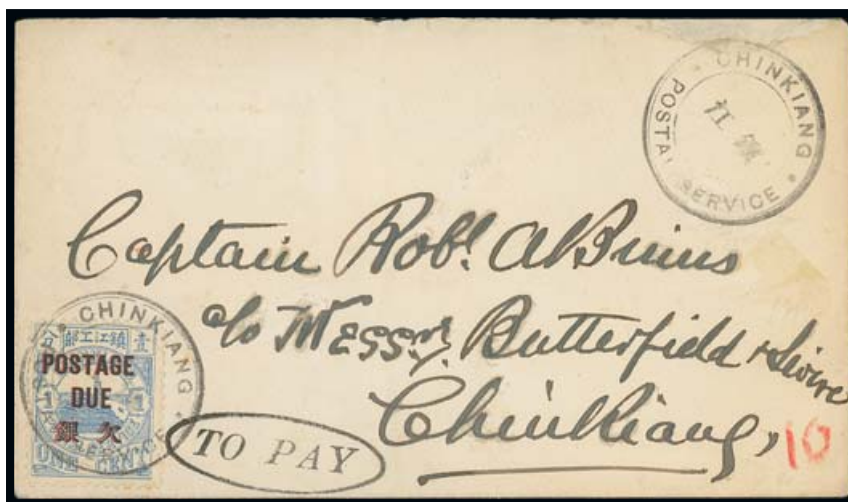 CHINKIANG
POSTAL SERVICE
Captain Robt.
c/o Messrs. Butterfield & Swire
Chinkiang,
10
CHINKIANG
POSTAGE
DUE
1 1
欠銀
ONE CENT
TO PAY